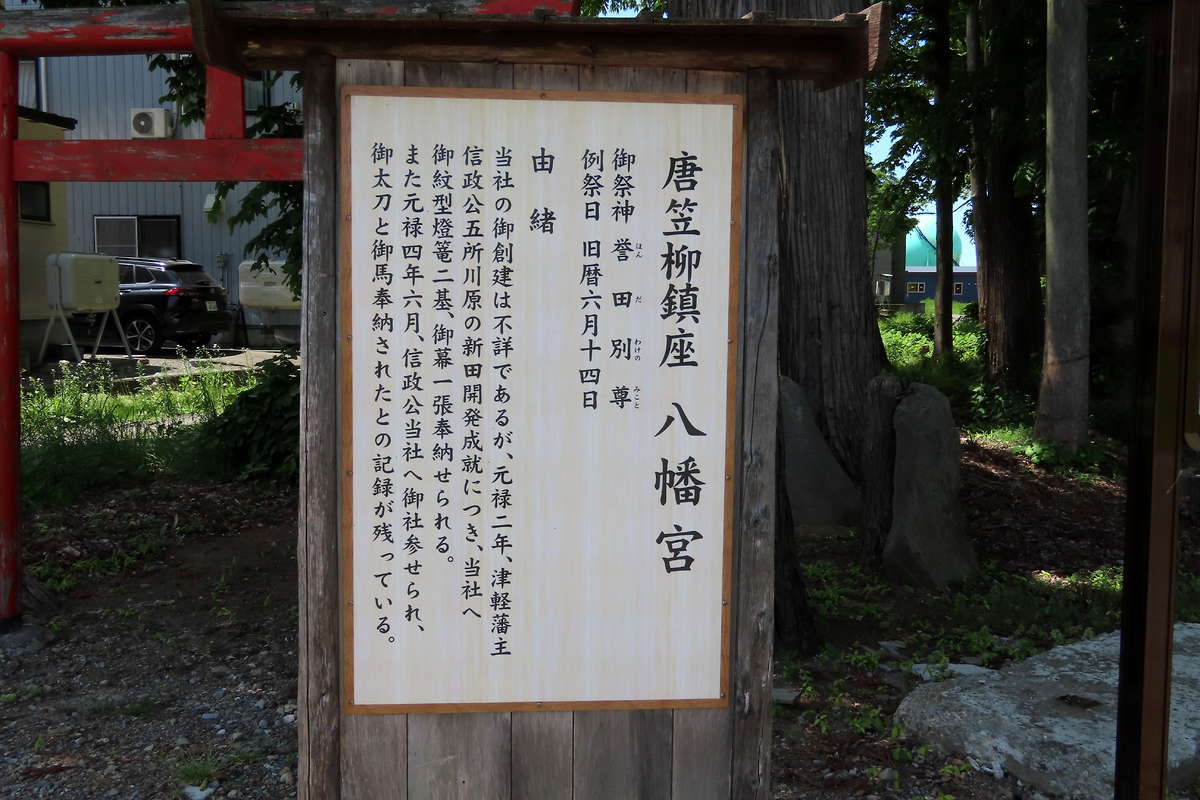 唐笠柳鎮座 八幡宮
御祭神 誉田別尊
ほんだわけのみこと
例祭日 旧暦六月十四日
由緒
当社の御創建は不詳であるが、元禄二年、津軽藩主
信政公五所川原の新田開発成就につき、当社へ
御紋型燈篭二基、御幕一張奉納せられる。
また元禄四年六月、信政公当社へ御社参せられ、
御太刀と御馬奉納されたとの記録が残っている。